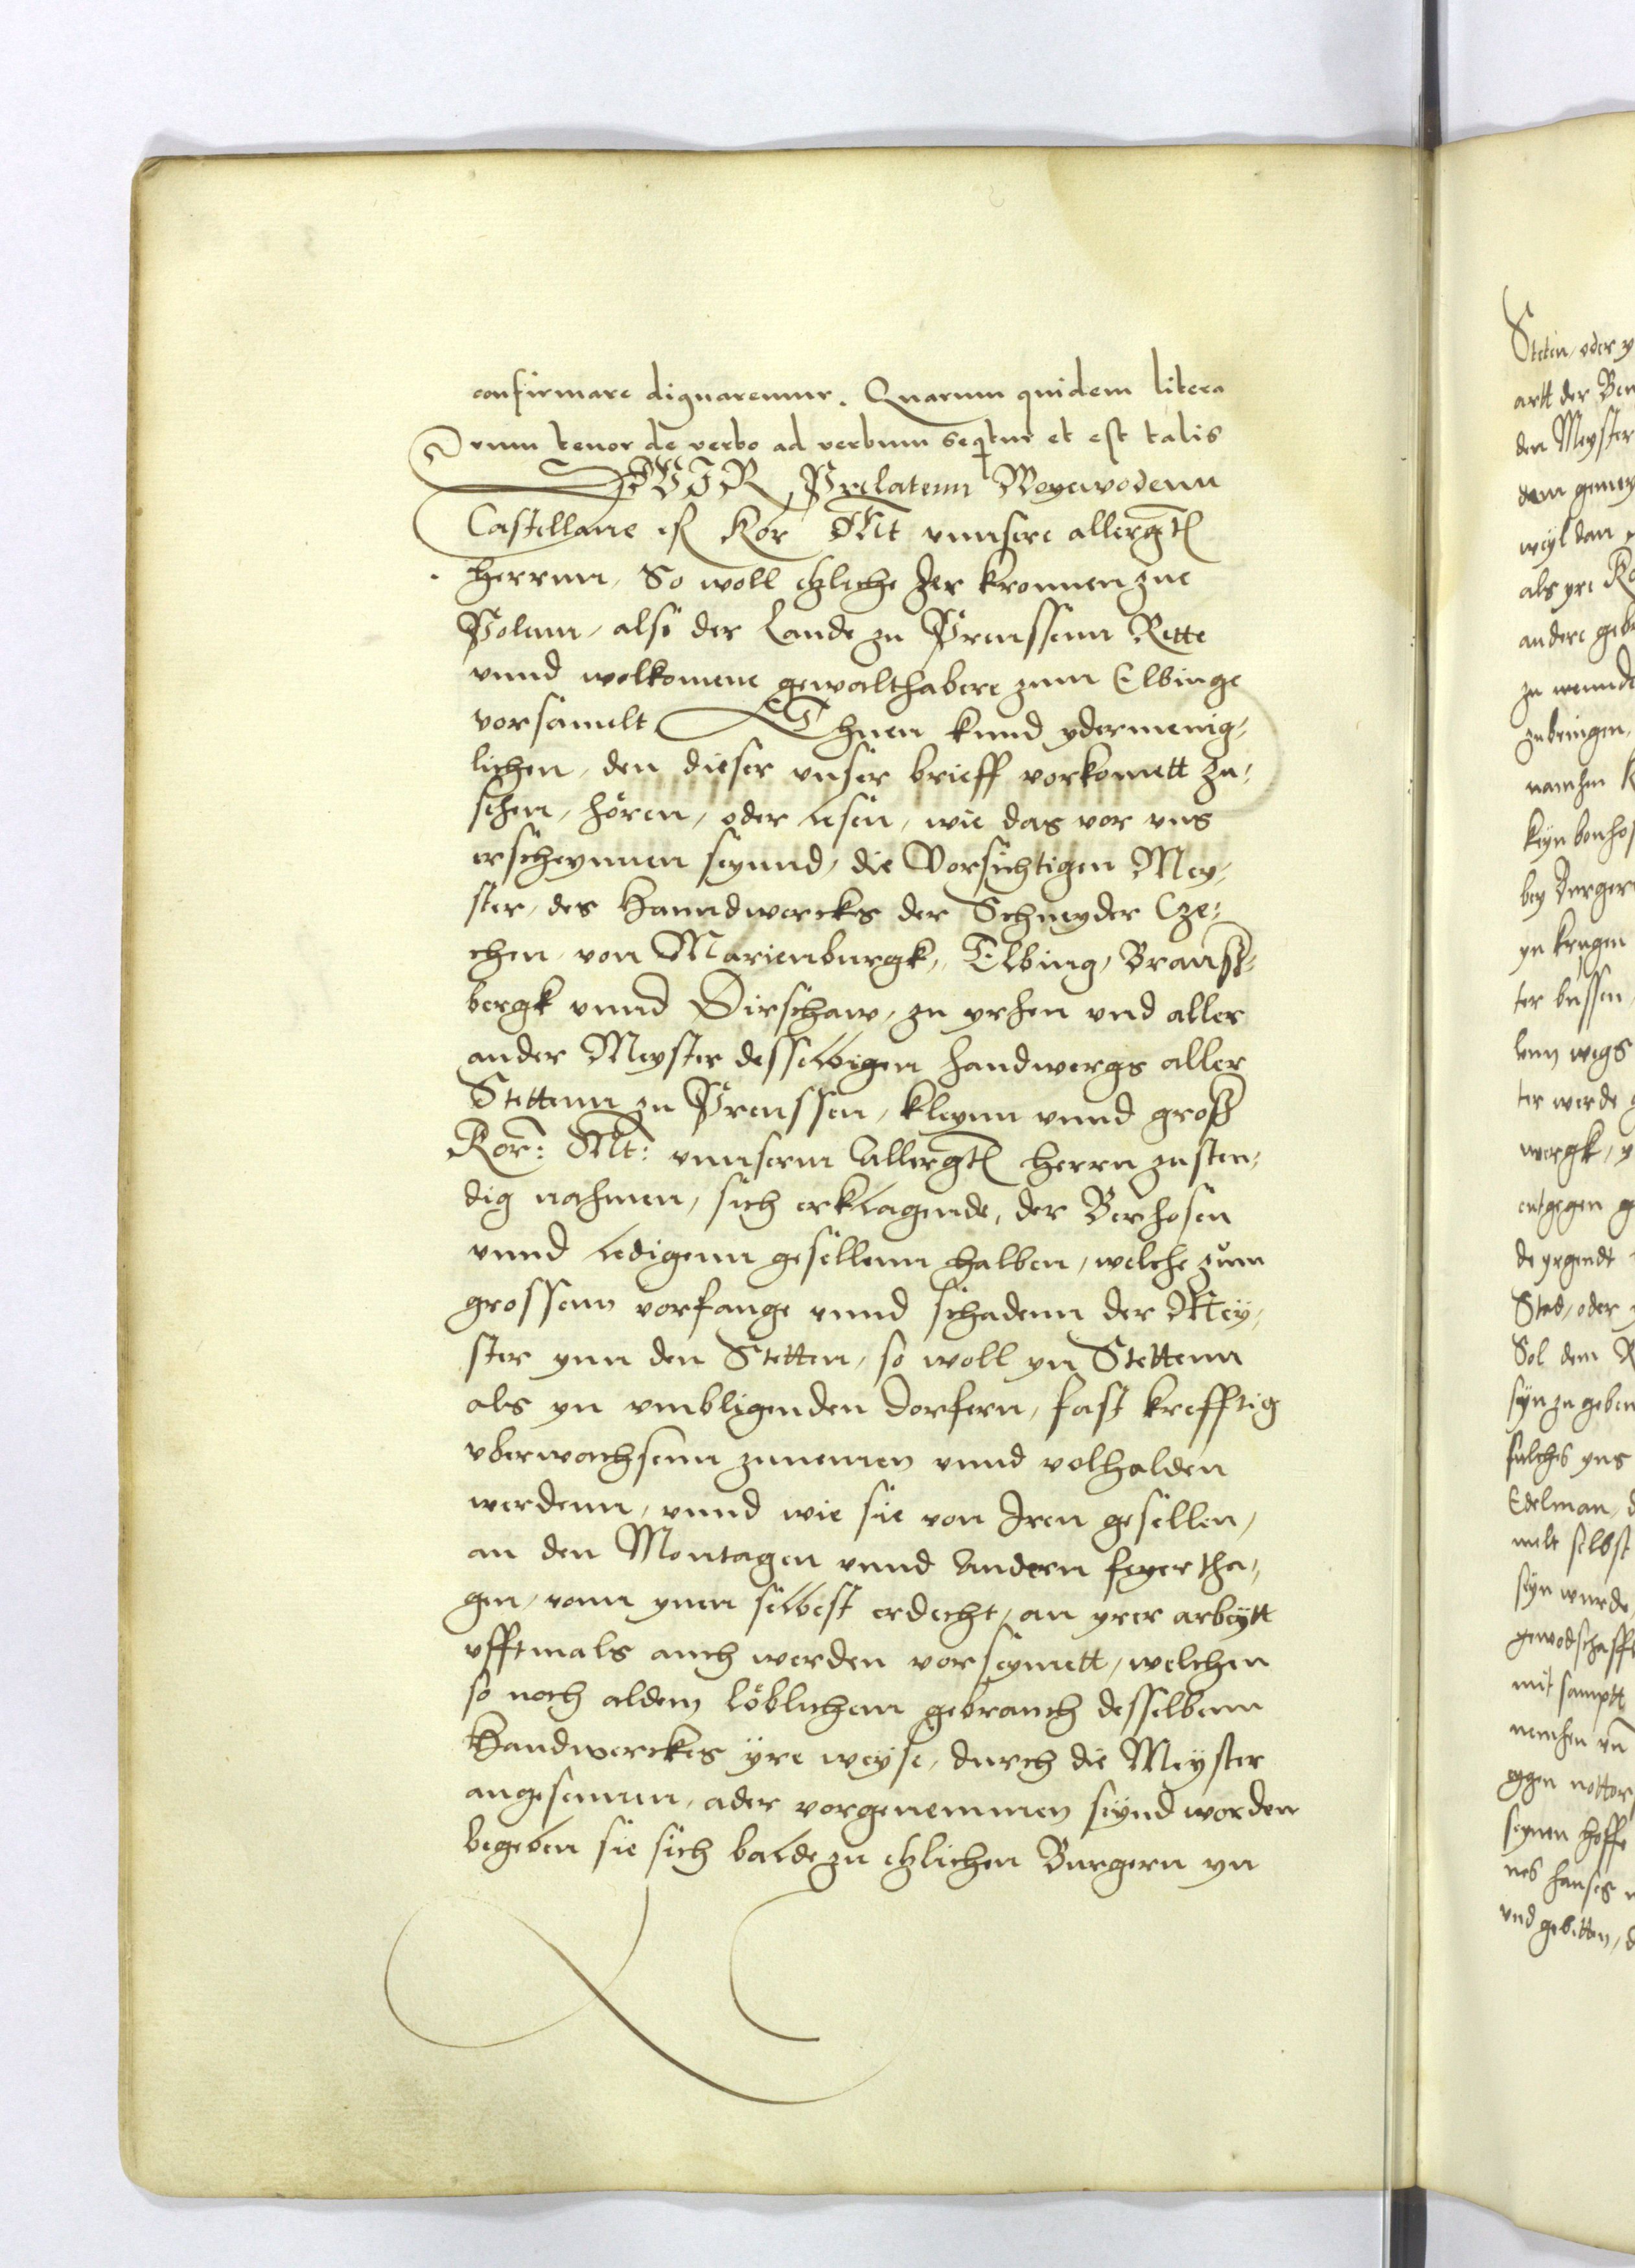 confirmare dignaremur. Quarum quidem litera
rum tenor de verbo ad verbum seqtur et est talis
WIR Prelatenn Woyewodenn
Castellane Kor Mt vnnsere allergt
Herrnn, So woll etzliche der kronnen zue
Polenn, alse der Lande zu Preussenn Rette
vnnd wolkomene gewalthabere zum Elbinge
vorsamelt Thuen kund ydermenig,
lichen, den dieser vnser brieff vorkomett zu,
sehen, hören, oder lesen, wie das vor vns
erscheynnen seynnd, die Vorsichtigen Mey,
ster, des Hanndwerckes der Schneyder Cze,
chen, von Marienburgk, Elbing, Brauns,
bergk vnnd Dirschaw, zu yrhen vnd aller
ander Meyster desselbigen handwergs aller
Stettenn zu Preussen, kleynn vnnd gross
Kor: Mt: vnnserm Allergt Herrn zusten,
dig nahmen, sich erklagende, der Benhosen
vnnd ledigenn gesellenn halben, welche zum
grossenn vorfange vnnd schadenn der Mey,
ster ynn den Stetten, so woll yn Stettenn
als yn vmbligenden dorfern, fast krefftig
vberwachsenn zunemen vnnd volhalden
werdenn, vnnd wie sie von Iren gesellen,
an den Montagen vnnd Andern feyertha,
gen, vonn ynen selbest erdecht, an yrer arbeytt
offtmals auch werden vorseymett, welchen
so noch aldem löblichem gebrauch desselbenn
Handwerckes yre weyse, durch die Meyster
angesennn, ader vorgenemmen seynd worden
begeben sie sich balde zu etzlichen Burgern yn
Steten, oder y
artt der Ben
den Meyster
dem gemey
weyl dan
als yre Ko
andere geb
zu wennde
zubringen,
namhen
keyn bonhos
bey Burger
yn krugen
ter bussen
lenn wegs
ter werde
wergk, y
entgegen g
de yrgendt
Stad, oder
Sol dem R
syn zu geben
sulches yns
Edelman, d
nelt selbst
seyn wurde,
gewodschafft
mit sampt
nemhen vn
eggen nottor
seynen hoffe
nes hauses
vnd gebitten, d